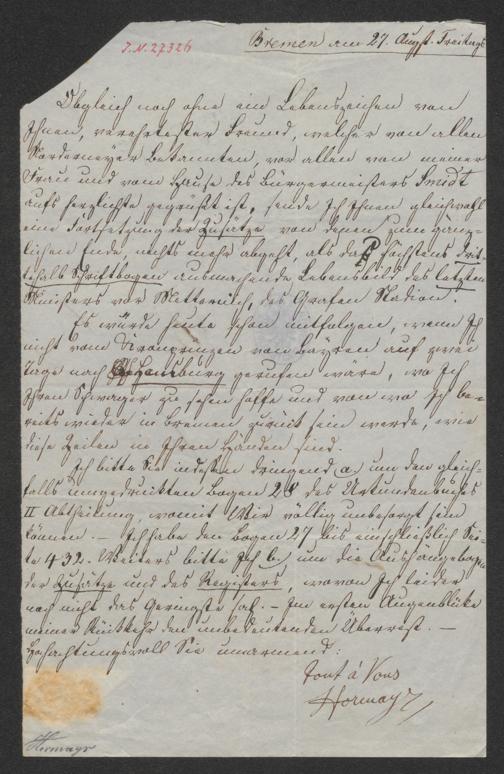 J.N. 27326
Bremen am 27. Augst. Freitags
Obgleich noch ohne ein Lebenszeichen von
Ihnen, verehrtester Freund, welcher von allen
Norderneyer Bekannten, vor allen von meiner
Frau und vom Hause des Bürgermeisters Smidt
aufs herzlichste gegrüßt ist, sende Ich Ihnen gleichwohl
eine Fortsetzung der Zusätze von denen zum gänz-
lichen Ende, nichts mehr abgeht, als das höchstens drit-
tehalb Schriftbogen ausmachende Lebensbild des letzten
Ministers vor Metternich, des Grafen Stadion.
Es würde heute schon mitfolgen, wenn Ich
nicht vom Kronprinzen von Bayern auf zwei
Tage nach gerufen wäre, wo Ich
Ihren Schwager zu sehen hoffe und von wo Ich be-
reits wieder in Bremen zurück sein werde, wie
diese Zeilen in Ihren Händen sind.
Ich bitte Sie indessen dringend (a) um den gleich-
falls umgedruckten Bogen 28 des Urkundenbuches
II Abtheilung, womit Wir völlig unbesorgt sein
können. – Ich habe den Bogen 27 bis einschließlich Sei-
te 432. Weiters bitte Ich b. um die Aushangebogen
der Zusätze und des Registers, wovon Ich leider
noch nicht das Geringste sah. – Im ersten Augenblicke
meiner Rückkehr den unbedeutenden Überrest. –
Hochachtungsvoll Sie umarmend:
Tout à Vous
Hormayr
Hormayr